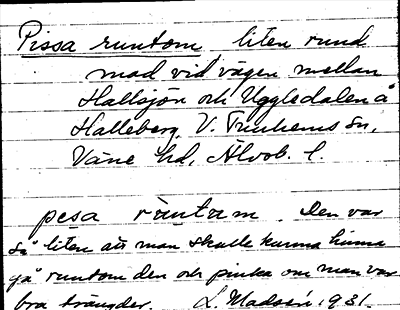 Pissa runtom, liten rund
mad vid vägen mellan
Hallsjön och Uggledalen å
Halleberg, V. Tunhems sn,
Väne hd, Älvsb. l.
pesa räntum. Den var
så liten att man skulle kunna hinna
gå runtom den och pinka om man var
bra trängder. L. Madsén, 1931.